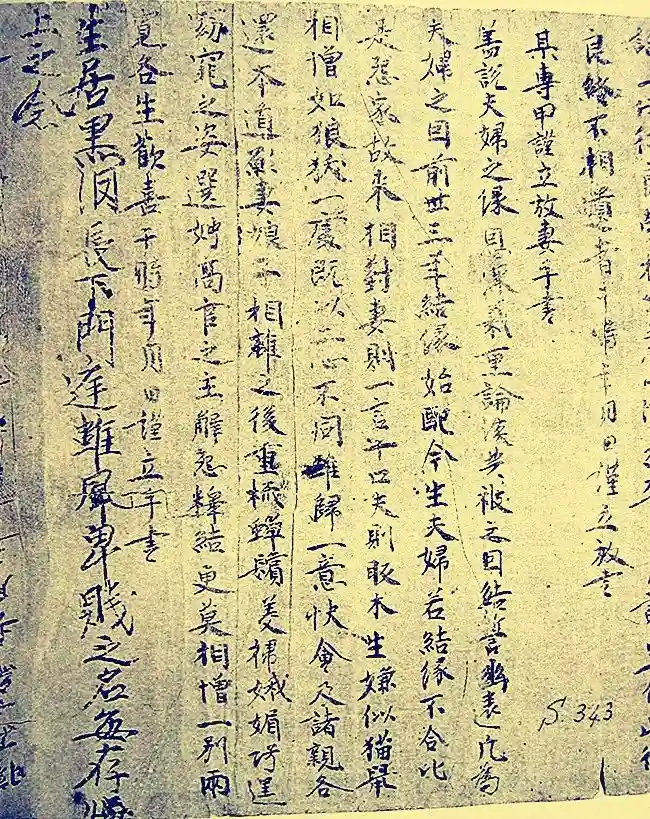 良終不相遺者于時年月日謹立放書
某專甲謹立放妻手書
蓋說夫婦之緣恩深義重論談共被之因結誓幽遠凡為
夫婦之因前世三年結緣始配今生夫婦若結緣不合比
是怨家故來相對妻則一言十口夫則販木生嫌似猫鼠
相憎如狼羖一處既以二心不同難歸一意快會及諸親各
還本道願妻娘子相離之後重梳蟬鬢美掃娥媚巧逞
窈窕之姿選娉高官之主解怨釋結更莫相憎一別兩
寬各生歡喜于時年月日謹立手書
生居黑長下門庭雖卑賤之名每存
上之念
S.343